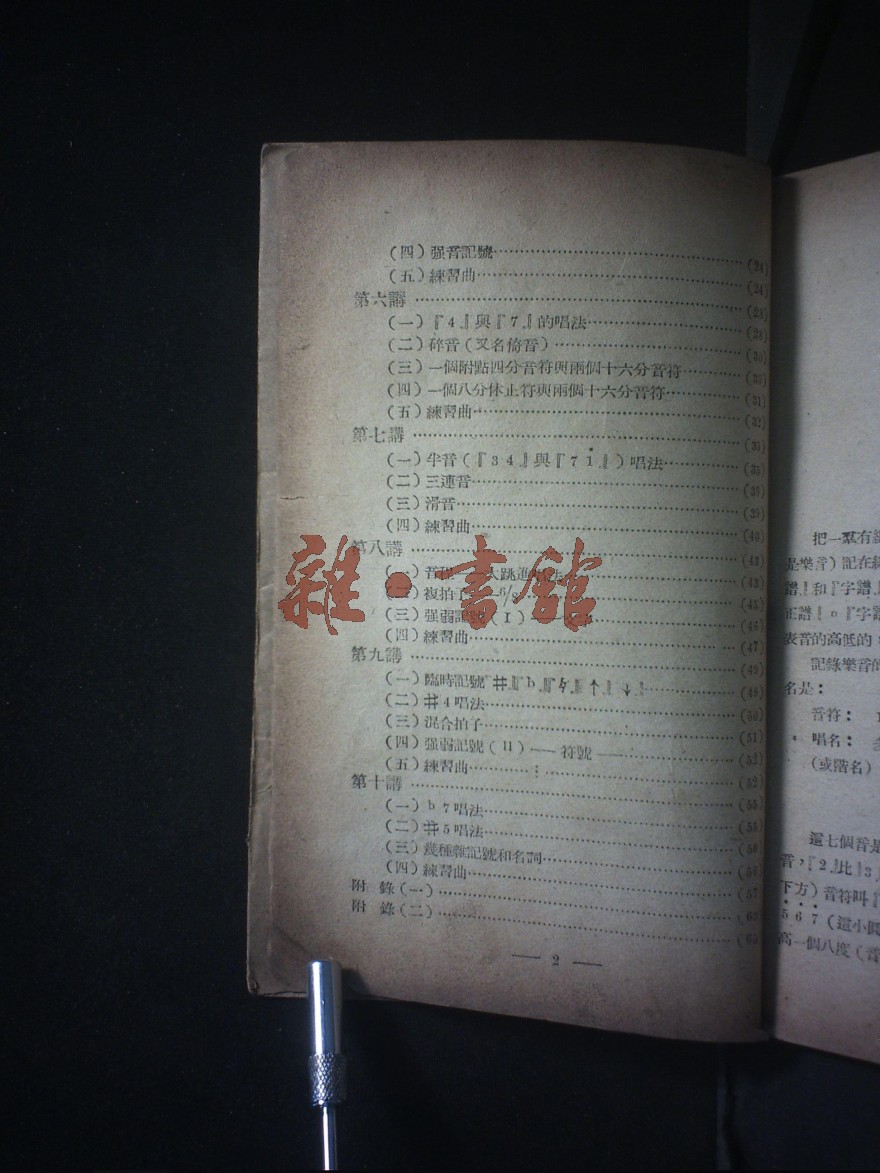 (四)强音記號……(24)
(五)練習曲……(24)
第六講……(28)
(一)『4』與『7』的唱法……(28)
(二)碎音(又名倚音)……(30)
(三)一個附點四分音符與兩個十六分音符……(30)
(四)一個八分休止符與兩個十六分音符……(31)
(五)練習曲……(32)
第七講……(35)
(一)半音(『3 4』與『7 i』)唱法……(35)
(二)三連音……(39)
(三)滑音……(39)
(四)練習曲……(40)
第八講……(43)
(一)音 大跳進 法……(43)
複拍子 6/8……(45)
(三)强弱記號(I)……(46)
(四)練習曲……(47)
第九講……(49)
(一)臨時記號『♯』『b』『♮』『↑』『↓』……(48)
(二)♯4唱法……(50)
(三)混合拍子……(51)
(四)强弱記號(II)——符號——……(52)
(五)練習曲……(52)
第十講……(55)
(一)b7唱法……(55)
(二)♯5唱法……(56)
(三)幾種雜記號和名詞……(56)
(四)練習曲……(57)
附 錄(一)……(63)
附 錄(二)……(65)
— 2 —
雜·書館
把一羣有
是樂音)記在
譜』和『字譜』
正譜』。『字譜
表音的高低的
記錄樂音的
名是:
音符: 1
唱名:
(或階名)
這七個音是
音,『2』比『3』
下方)音符叫『
5 6 7(這小圓
高一個八度(音